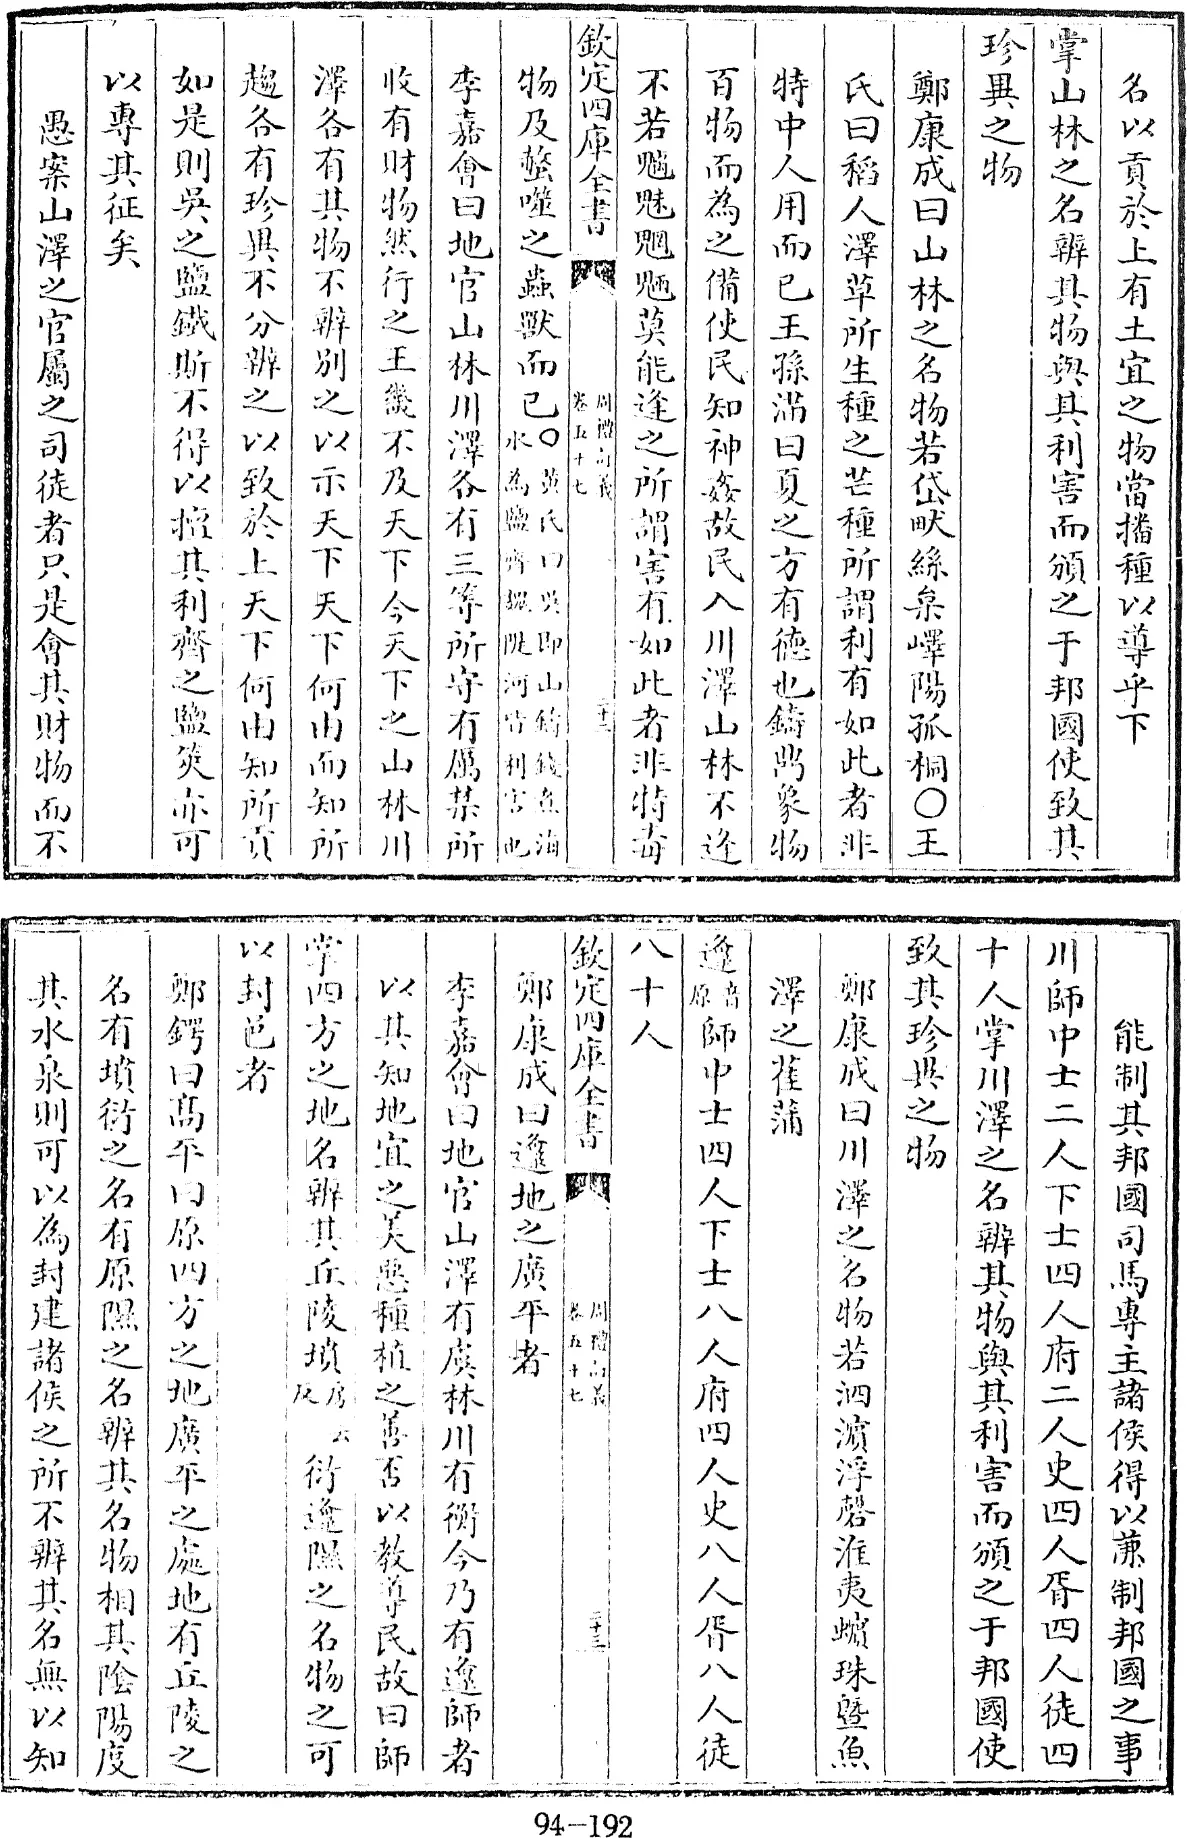 名以貢於上有土宜之物當播種以導乎下
掌山林之名辨其物與其利害而頒之于邦國使致其
珍異之物
鄭康成曰山林之名物若岱畎絲枲嶧陽孤桐〇王
氏曰稻人澤草所生種之芒種所謂利有如此者非
特中人用而已王孫滿曰夏之方有德也鑄鼎象物
百物而為之備使民知神姦故民入川澤山林不逢
不若魑魅魍魎莫能逢之所謂害有如此者非特毒
欽定四庫全書 周禮訂義 卷五十七 二十二
物及螫噬之蟲獸而已〇黃氏曰吳即山鑄錢煮海
水為鹽齊擅陡河皆利害也
李嘉會曰地官山林川澤各有三等所守有厲某所
收有財物然行之王畿不及天下今天下之山林川
澤各有其物不辨别之以示天下天下何由而知所
趨各有珍異不分辨之以致於上天下何由知所貢
如是則吳之鹽鐵斯不得以擅其利齊之鹽筴亦可
以專其征矣
愚案山澤之官屬之司徒者只是會其財物而不
能制其邦國司馬專主諸侯得以兼制邦國之事
川師中士二人下士四人府二人史四人胥四人徒四
十人掌川澤之名辨其物與其利害而頒之于邦國使
致其珍異之物
鄭康成曰川澤之名物若泗濵浮磬淮夷蠙珠曁魚
澤之萑蒲
邍音原師中士四人下士八人府四人史八人胥八人徒
八十人
欽定四庫全書 周禮訂義 卷五十七 二十三
鄭康成曰邍地之廣平者
李嘉會曰地官山澤有虞林川有衡今乃有邍師者
以其知地宜之美惡種植之善否以教導民故曰師
掌四方之地名辨其丘陵墳衍邍隰之名物之可
以封邑者
鄭鍔曰髙平曰原四方之地廣平之處地有丘陵之
名有墳衍之名有原隰之名辨其名物相其陰陽度
其水泉則可以為封建諸侯之所不辨其名無以知
94-192